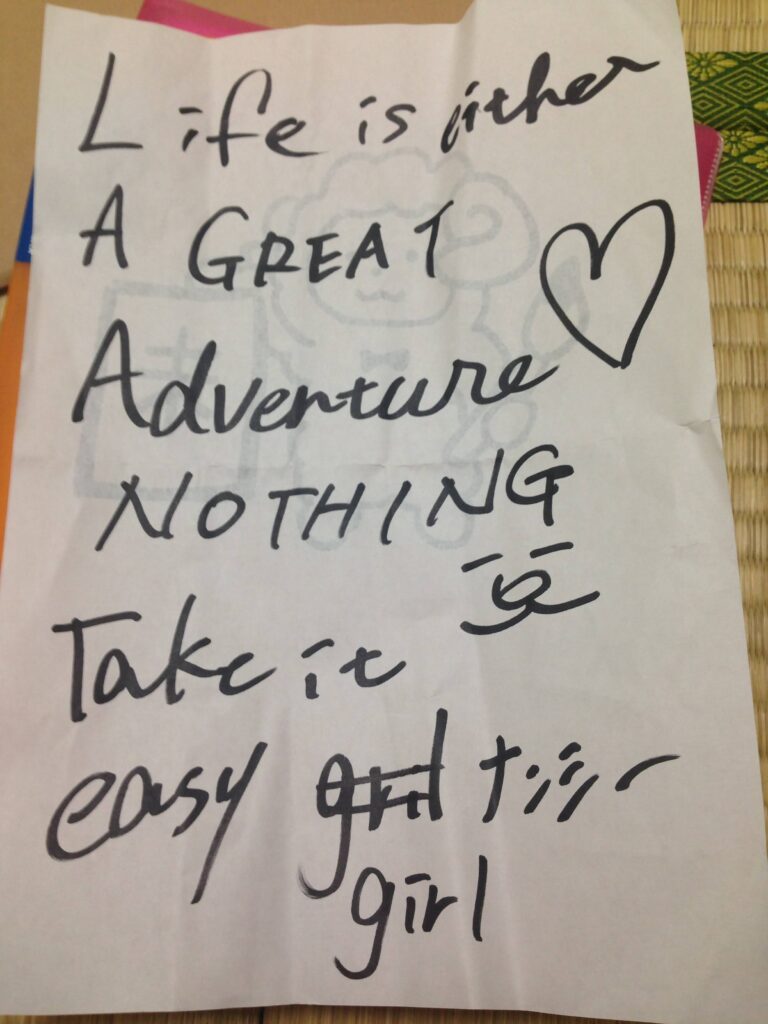 Life is either
A GREAT
Adventure
NOTHING
Take it
easy ナンシー
girl